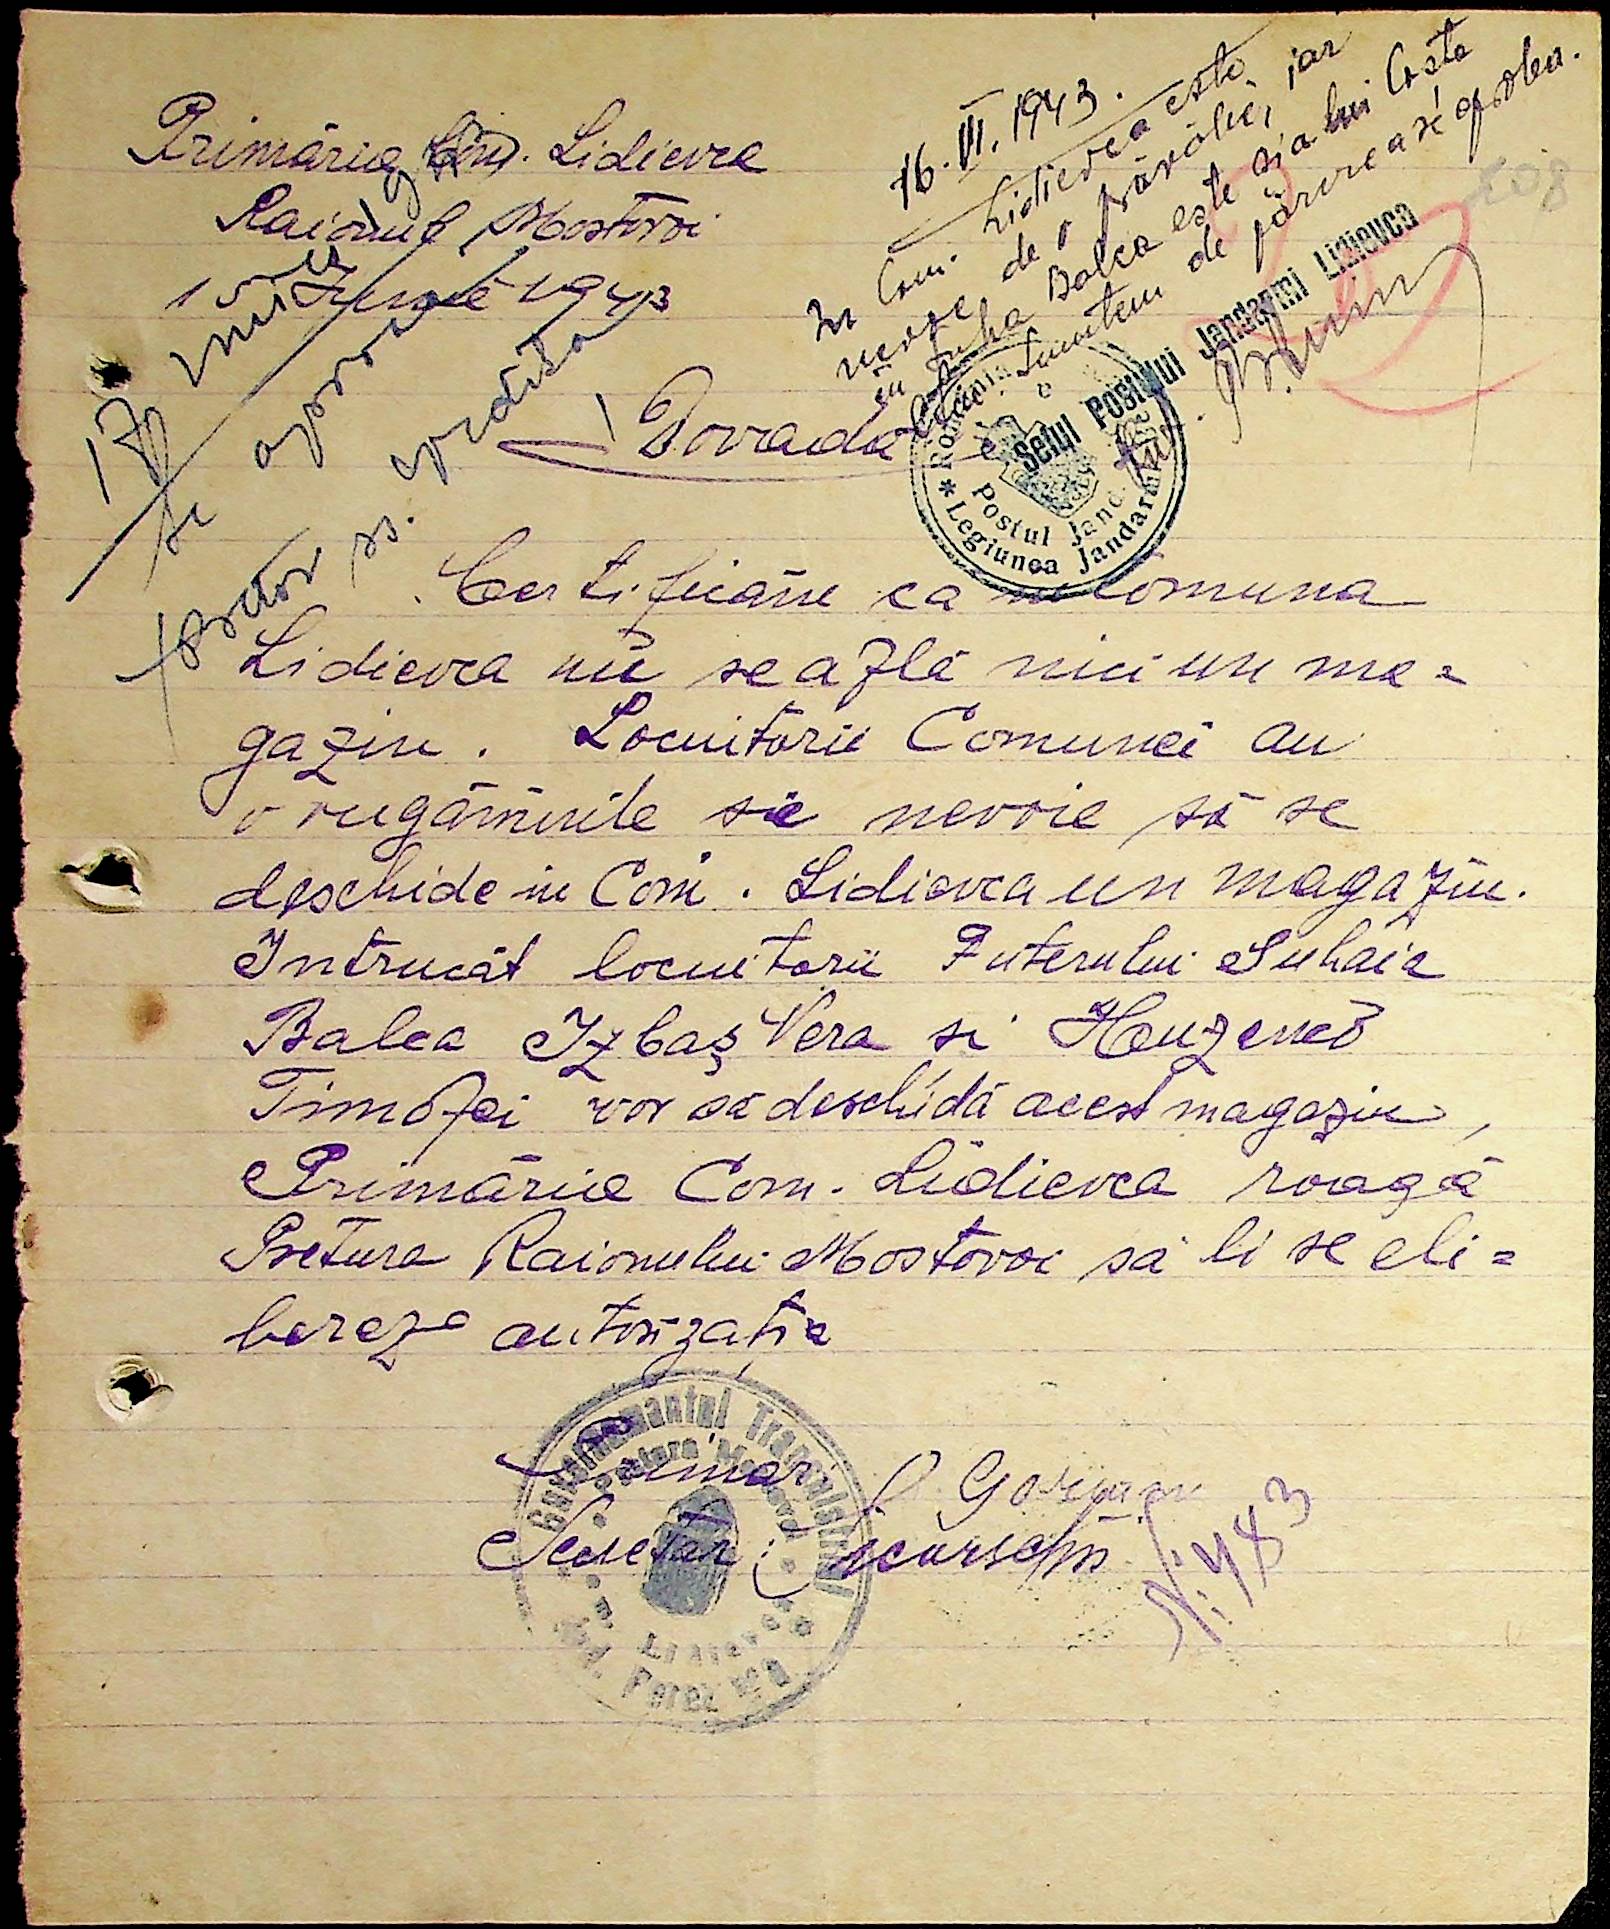 Primăria Com. Lidievca
Raionul Mostovoi
15 Iunie 1943
16.VI.1943.
In Com. Lidievca este
nevoe de o prăvălie, iar
în Suha Balca este și a lui Costa
Suntem de părere a se aproba.
Seful Postului Jandarmi Lidievca
208
17
se aprobă
Dovada
România
Postul Jand.
* Legiunea Jandarmi
Certificăm ca in comuna
Lidievca nu se aflã nici un ma=
gazin. Locuitorii Comunei au
o rugăminte sie nevoie să se
deschide in Com. Lidievca un magazin.
Intrucăt locuitorii Futerului Suhaia
Balca Izbaș Vera si
Timofei vor sa deschidă acest magazin,
Primăria Com. Lidievca roagă
Pretura Raionului Mostovoi să li se eli=
bereze autorizație
Primar
Secretar:
Guvernamantul Transnistriei
Pretura Mostovoi
Com. Lidievca
Jud. Berezovca
N: 483